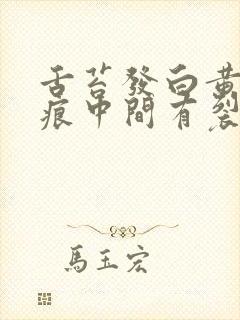 舌苔發白黃
痕中間有裂
馬玉宏